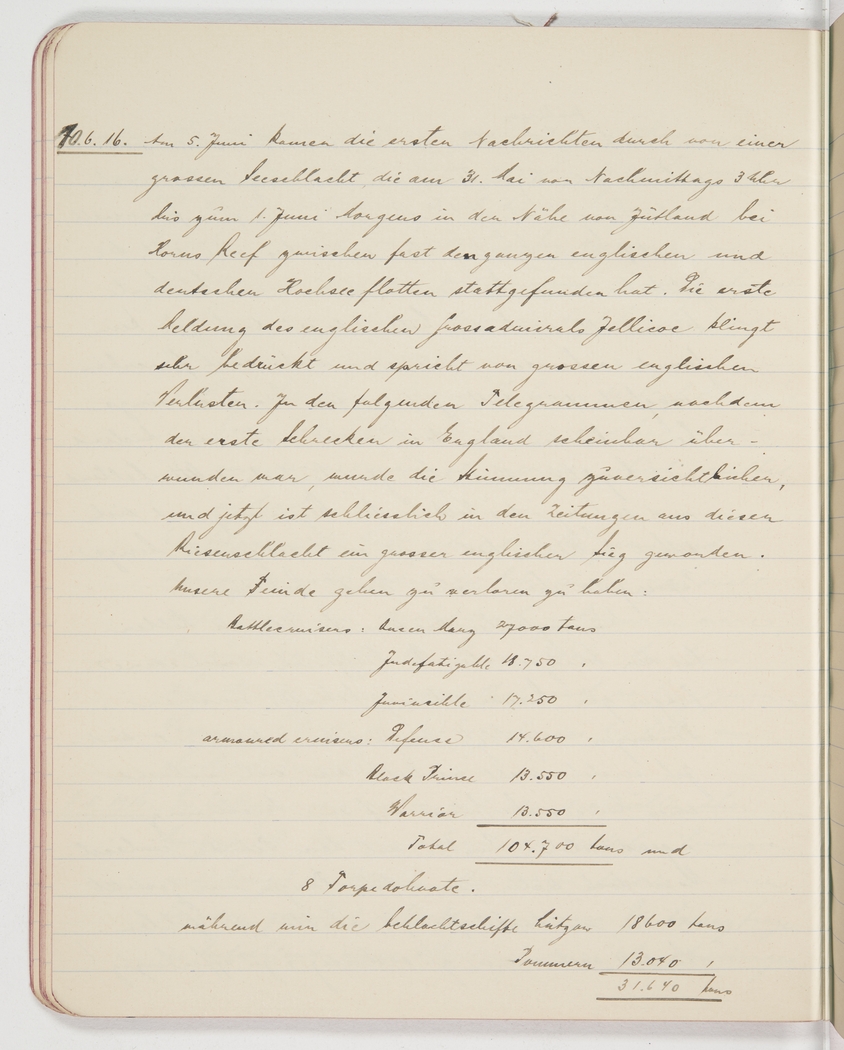 10.6.16. Am 5. Juni kamen die ersten Nachrichten durch von einer
grossen Seeschlacht, die am 31. Mai von Nachmittags 3 Uhr
bis zum 1. Juni Morgens in der Nähe von Jütland bei
Horns Reef zwischen fast den ganzen englischen und
deutschen Hochseeflotten stattgefunden hat. Die erste
Meldung des englischen Grossadmirals Jellicoe klingt
sehr bedrückt und spricht von grossen englischen
Verlusten. In den folgenden Telegrammen, nachdem
der erste Schrecken in England scheinbar über-
wunden war, wurde die Stimmung zuversichtlicher,
und jetzt ist schliesslich in den Zeitungen aus dieser
Riesenschlacht ein grosser englischer Sieg geworden.
Unsere Feinde geben zu verloren zu haben:
Battlecruisers: Queen Mary 27000 tons
Indefatigable 18.750 "
Invinsible 17.250 "
armoured cruisers: Defense 14.600 "
Black Prince 13.550 "
Warrior 13.550 "
Total 104.700 tons und
8 Torpedoboote.
während wir die Schlachtschiffe Lützow 18600 tons
Pommern 13.040 "
31.640 tons